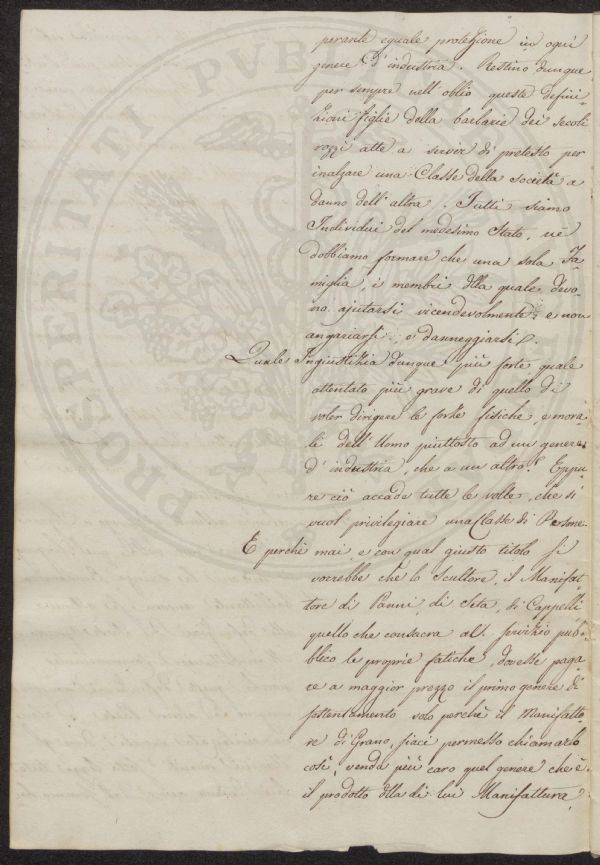 perante eguale protezione in ogni
genere d'industria. Restino dunque
per sempre nell'oblio queste defini-
zioni figlie della barbarie dei secoli
rozzi atte a servire di pretesto per
inalzare una Classe della società a
danno dell'altra. Tutti siamo
Individui del medesimo Stato, nè
dobbiamo formare che una sola Fa-
miglia, i membri dlla quale devo-
no ajutarsi vicendevolmente, e non
angariarsi, e danneggiarsi.
Quale Ingiustizia dunque più forte quale
attentato più grave di quello di
voler dirigere le forze fisiche, e mora-
li dell'Uomo piuttosto ad un genere
d'industria, che a un altro? Eppu-
re ciò accade tutte le volte, che si
vuol privilegiare una Classe di Persone.
E perchè mai, e con qual giusto titolo si
vorrebbe che lo Scultore, il Manifat-
tore di Panni di Seta, di Cappelli
quello che consacra al servizio pub-
blico le proprie fatiche, dovesse paga-
re a maggior prezzo il primo genere di
sostentamento solo perchè il Manifatto-
re di Grano, siaci permesso chiamarlo
così, venda più caro quel genere che è
il prodotto dlla di lui Manifattura?
PROSPERITATI PUBLI